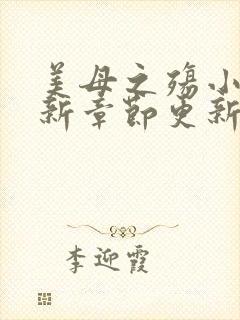 美母之殇小
新章节更新
李迎霞